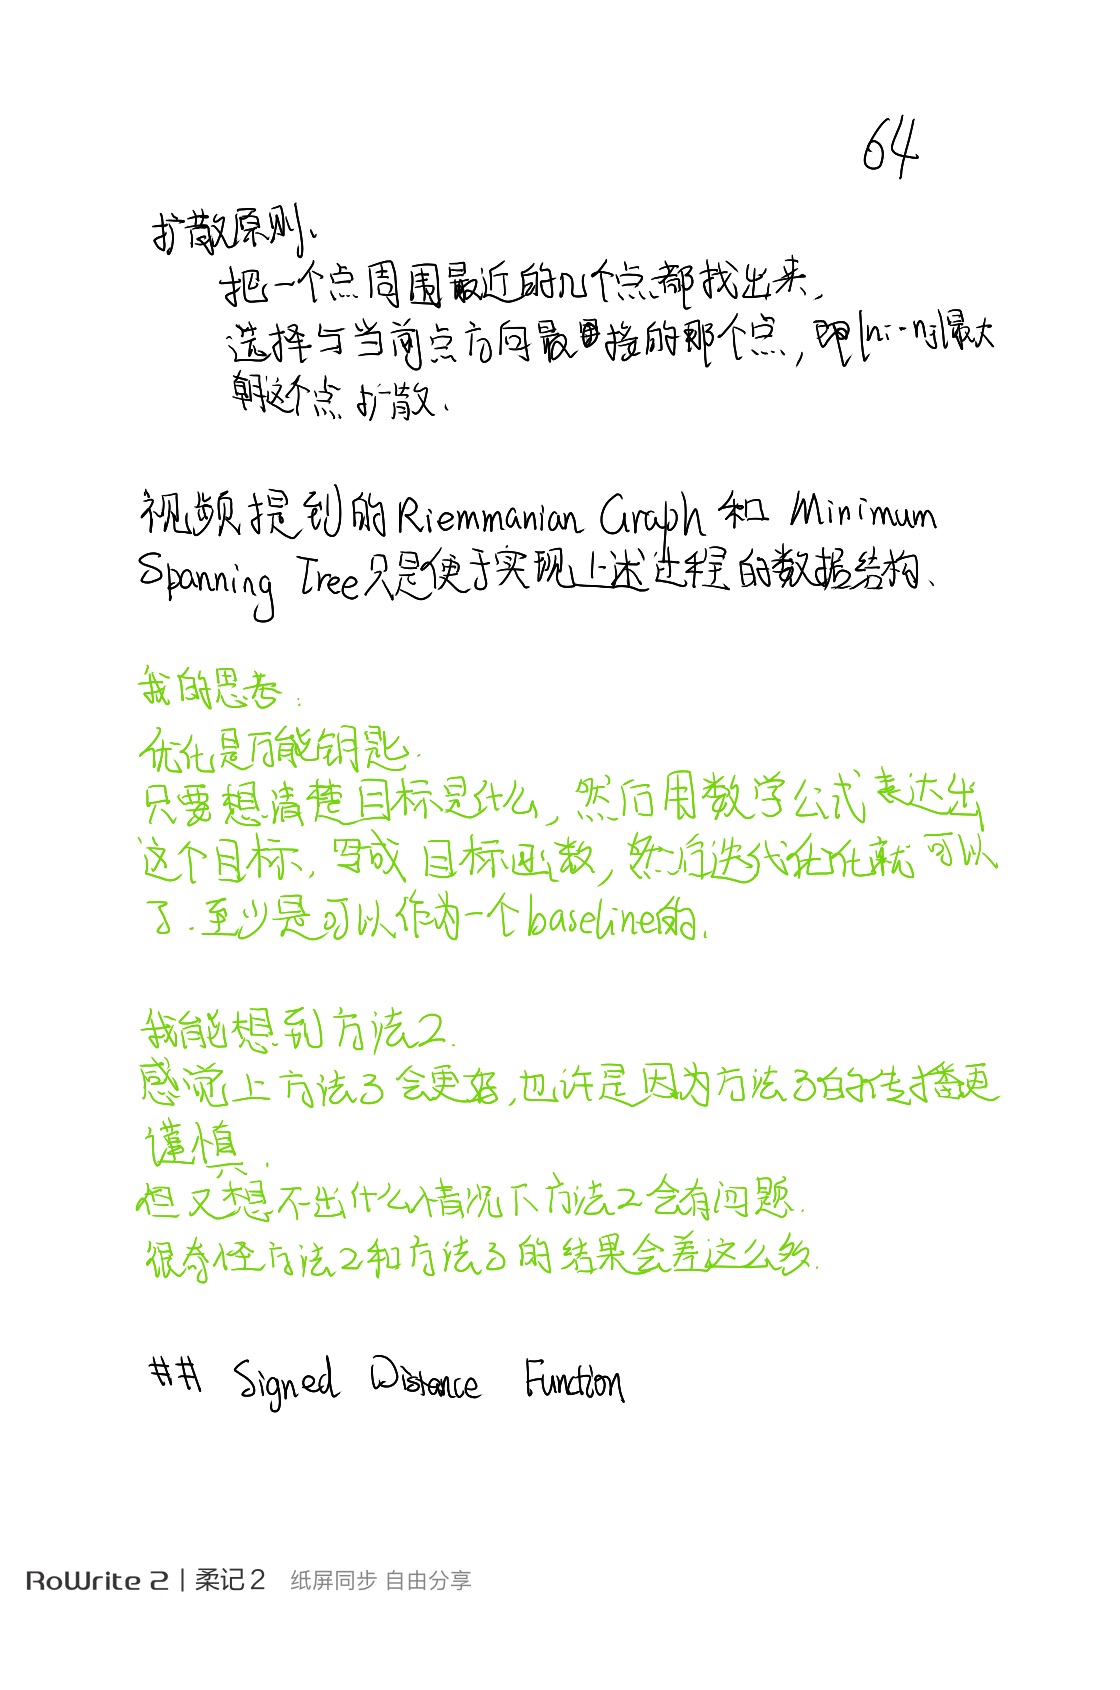 64
扩散原则、
把一个点周围最近的几个点都找出来,
选择与当前点方向最接的那个点, 即|ni·nj|最大
朝这个点扩散.
视频提到的Riemmanian Graph和 Minimum
Spanning Tree只是便于实现上述过程的数据结构、
我的思考:
优化是万能钥匙.
只要想清楚目标是什么, 然后用数学公式表达出
这个目标. 写成目标函数, 然后迭代优化就可以
了. 至少是可以作为一个baseline的.
我能想到方法2.
感觉上方法3会更好, 也许是因为方法3的传播更
谨慎.
但又想不出什么情况下方法2会有问题.
很奇怪方法2和方法3的结果会差这么多.
## Signed Distance Function
RoWrite 2 | 柔记 2 纸屏同步 自由分享